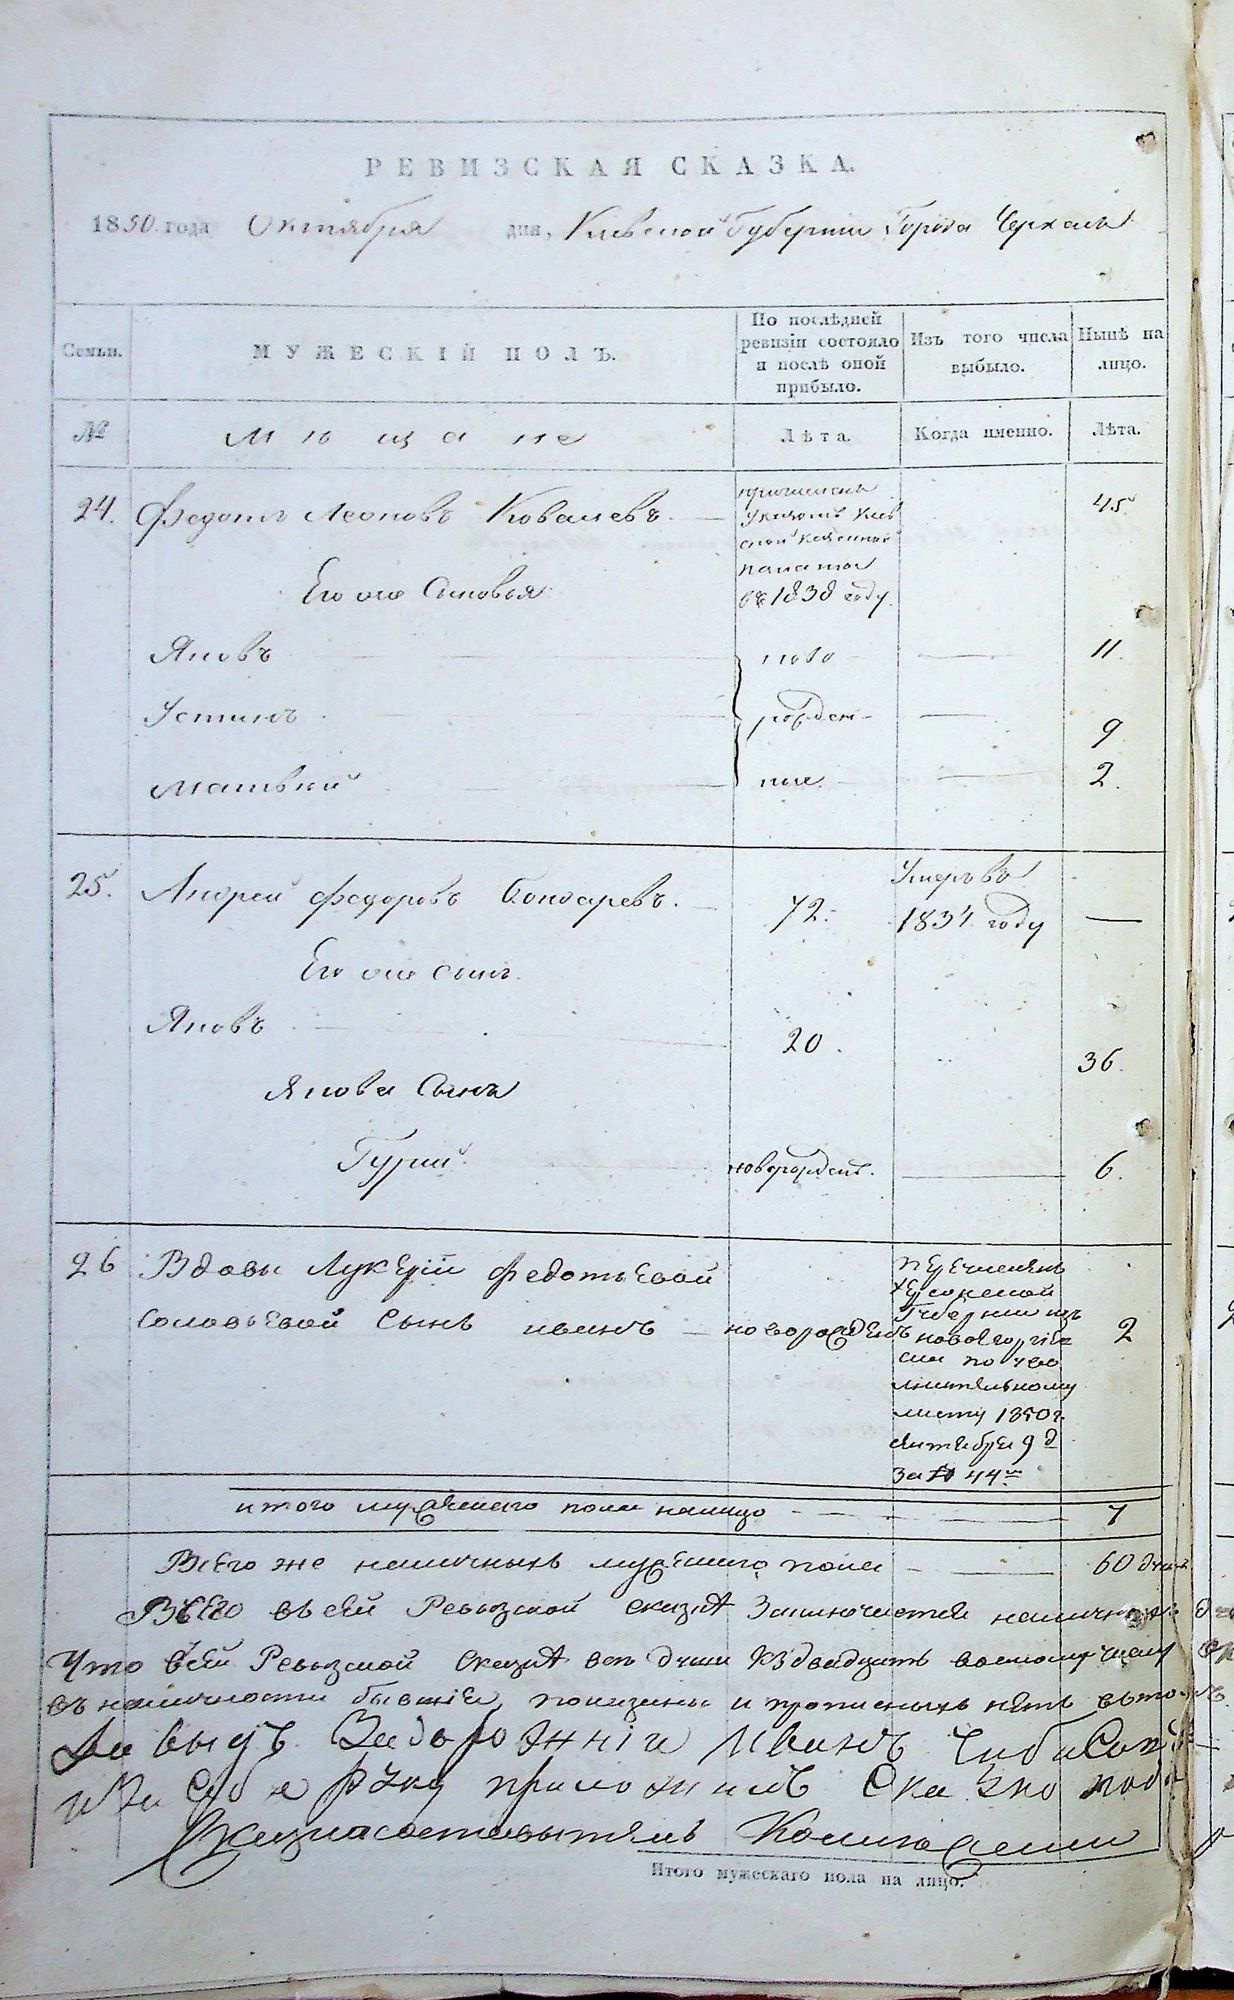 РЕВИЗСКАЯ СКАЗКА.
1850 года Октября дня, Кіевской Губерніи Города Черкасъ
Семьи. МУЖЕСКІЙ ПОЛЪ. По послѣдней ревизіи состояло и послѣ оной прибыло. Изъ того числа выбыло. Нынѣ на лицо.
№ Мѣщане Лѣта. Когда именно. Лѣта.
24. Федотъ Леоновъ Ковалевъ. 45
причисленъ
указомъ Кіев
ской казенной
палаты
въ 1838 году.
Его же Сыновья
Яковъ ново 11.
Устинъ рожден- 9
Матвѣй ные. 2.
25. Андрей Федоровъ Бондаревъ. 72. Умеръ въ
1834 году —
Его же сынъ.
Яковъ 20. 36.
Якова Сынъ
Гурий. новорожденъ. 6.
26 Вдовы Лукерій Федотьевой
Соловьевой Сынъ Иванъ новорожденъ 2
перечисленъ
Херсонской
Губерніи изъ
новогеоргіев
ска по
лнительному
листу 1850 г.
сентября 9 д
за № 44
итого мужескаго пола налицо 7
Всего же наличныхъ мужескаго пола 60 душ
Всего въ сей Ревизской сказкѣ Заключается наличныхъ
Что в сей Ревизской Сказкѣ всѣ души
въ наличности бывшіе, показаны и прописныхъ нѣтъ въ том
Иванъ
руку приложилъ
Итого мужескаго пола на лицо.